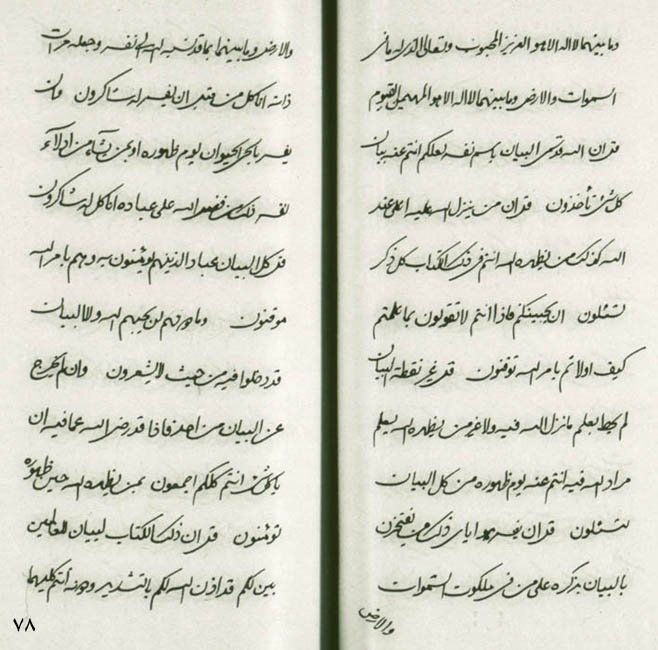 وما بينهما لا اله الا هو العزيز المحبوب وتعالى الذي له ما في
السموات والارض وما بينهما لا اله الا هو المهيمن القيوم
قل ان الله قد سمى البيان باسم نفسه لعلكم انتم عنه ببيان
كل شئ تأخذون قل ان من ينزل الله عليه اعلى عند
الله كذلك من يظهره الله انتم في ذلك الكتاب كل ذكر
تسئلون ان يجيبنكم فاذا انتم لا تقولون بما علمتم
كيف اولا تم بامر الله توقنون قل غير نقطة البيان
لم يحط بعلم ما نزل الله فيه ولا غير من يظهره الله يعلم
مراد الله فيه انتم عنه يوم ظهوره من كل البيان
تسئلون قل ان يفسر اياى ذلك من يفتخرن
بالبيان بذكره على من في ملكوت السموات
والارض
والارض وما بينهما بما قد نسبه الله الى نفسه وجعله مرات
ذاته انا كل من قبل ان يفسر له شاكرون وان
يفسر بالحيوان يوم ظهوره او بمن يشاء من ادلاء
نفسه ذلك من فضل الله على عباده انا كل له شاكرون
قل كل البيان عباد الذينهم يؤمنون به وهم بامر الله
موقنون وما دونهم لن يحبهم الله ولا البيان
قد دخلوا فيه من حيث لا يشعرون وان لم يخرج
عن البيان من احد فاذا قد رضى الله عما فيه ان
يا كل شئ انتم كلكم اجمعون بمن يظهره الله حين ظهوره
تؤمنون قل ان ذلك الكتاب لبيان للعالمين
بين لكم قد اذن الله لكم بالتفسير ودونه انتم كليهما
٧٨